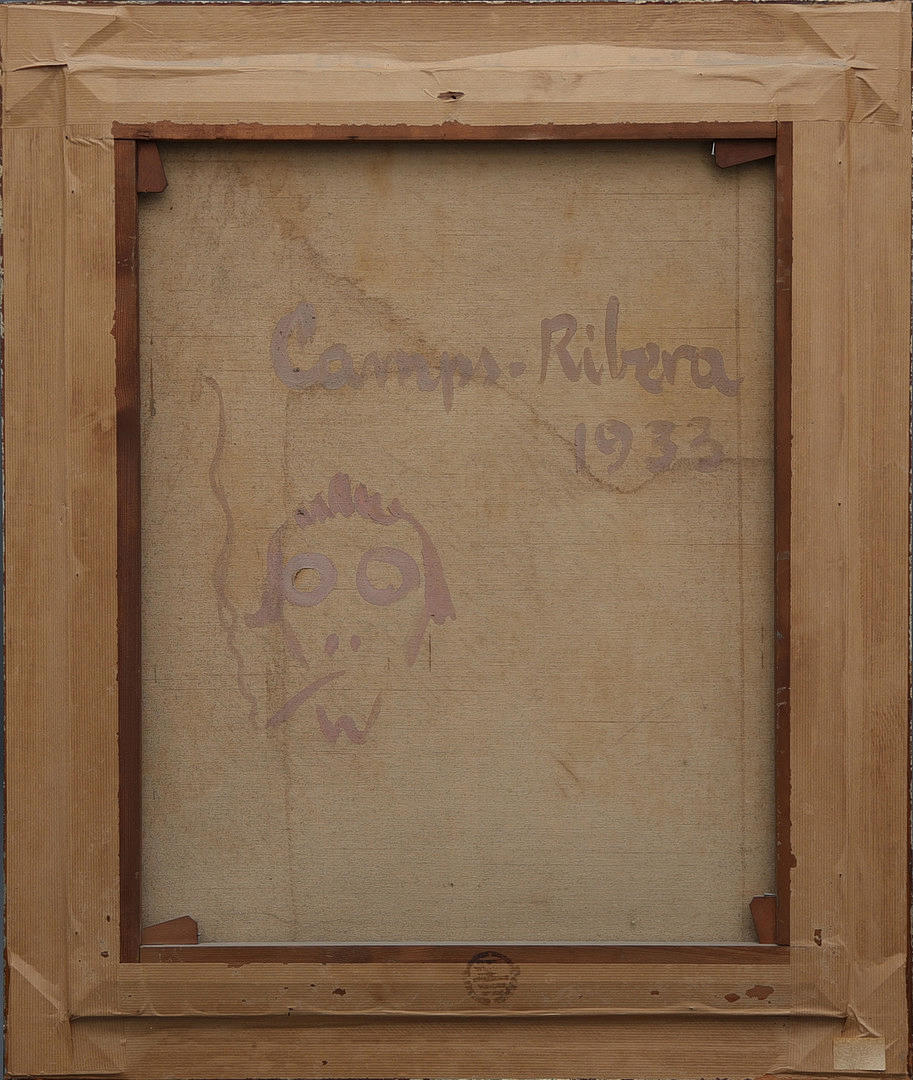 Camps-Ribera
1933